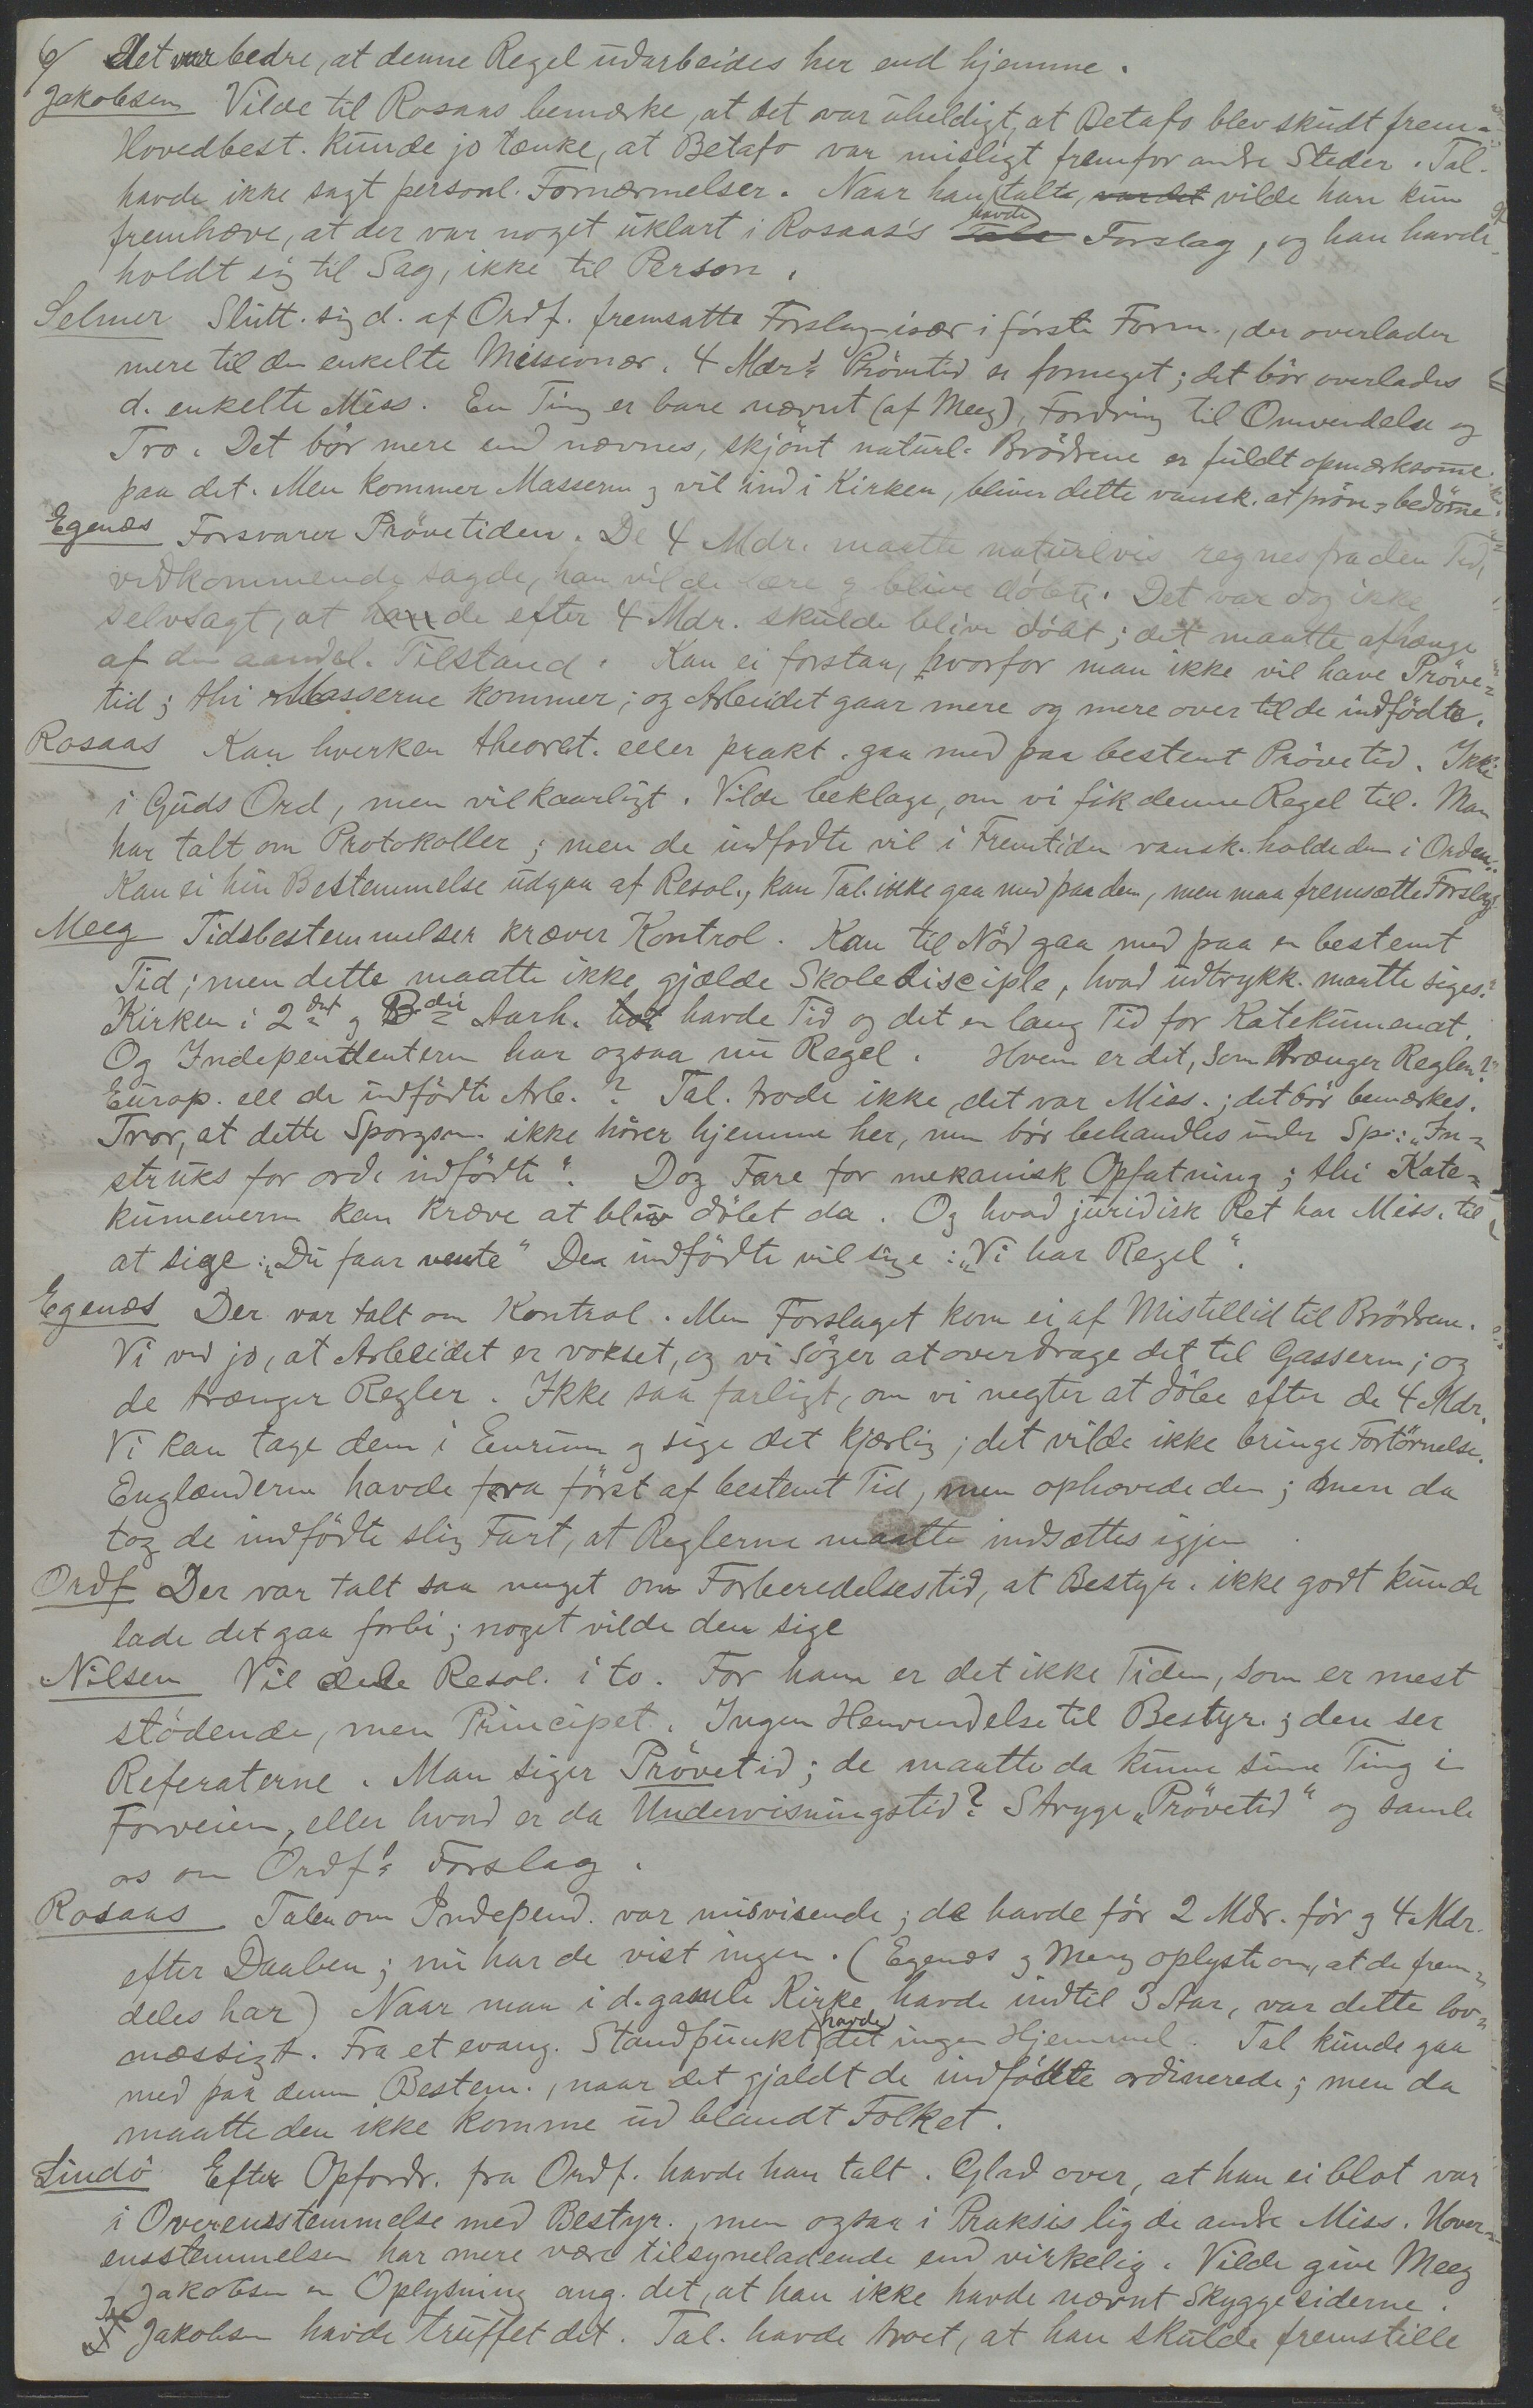 6/ Det var bedre, at denne Regel udarbeides her end hjemme.
Jakobsen Vilde til Rosaas bemærke, at det var uheldigt, at Betafo blev skudt frem.
Hovedbest. kunde jo tænke, at Betafo var misligt fremfor andre Steder. Tal.
havde ikke sagt personl. Fornærmelser. Naar han havde talte, var det vilde han kun
fremhæve, at der var noget uklart i Rosaas's Tale Forslag, og han havde
holdt sig til Sag, ikke til Person.
Selmer Slutt. sig d. af Ordf. fremsatte Forslag især i første Form., der overlader
mere til den enkelte Missionær. 4 Mdr's Prövetid er formeget; det bör overlades
d. enkelte Miss. En Ting er bare nævnt (af Meeg), Fordring til Omvendelse og
Tro. Det bör mere end nævnes, skjönt naturl. Brödrene er fuldt opmærksomme
paa det. Men kommer Masserne og vil ind i Kirken, bliver dette vansk. at pröve og bedömme.
Egenæs Forsvarer Prövetiden. De 4 Mdr. maatte naturlvis regnes fra den Tid,
vedkommende sagde, han vilde lære og blive döbte. Det var dog ikke
selvsagt, at han de efter 4 Mdr. skulde blive döbt; det maatte afhænge
af den aandel. Tilstand. Kan ei forstaa, hvorfor man ikke vil have Pröve-
tid; thi Masserne kommer; og Arbeidet gaar mere og mere over til de indfödte.
Rosaas Kan hverken theoret. eller prakt. gaa med paa bestemt Prövetid. Ikke
i Guds Ord, men vilkaarligt. Vilde beklage, om vi fik denne Regel til. Man
har talt om Protokoller; men de indfødte vil i Fremtiden vansk. holde dem i Orden.
Kan ei hin Bestemmelse udgaa af Resol., kan Tal. ikke gaa med paa den, men maa fremsætte Forslag
Meeg Tidsbestemmelser kræver Kontrol. Kan til Nöd gaa med paa en bestemt
Tid; men dette maatte ikke gjælde Skoledisciple, hvad udtrykk. maatte siges.
Kirken i 2det og 3die Aarh. havde Tid og det en lang Tid for Katekumenat.
Og Independenterne har ogsaa nu Regel. Hvem er det, som trænger Reglen?
Europ. ell de indfödte Arb.? Tal. trode ikke det var Miss.; det bör bemærkes.
Tror, at dette Spørgsm. ikke hörer hjemme her, men bör behandles under Sp: "In-
struks for ord. indfödte". Dog Fare for mekanisk Opfatning; thi Kate-
kumenerne kan kræve at blive döbt da. Og hvad juridisk Ret har Miss. til
at sige: "Du faar vente" Den indfödte vil sige: "Vi har Regel".
Egenæs Der var talt om Kontrol. Men Forslaget kom ei af Mistillid til Brödrene.
Vi ved jo, at Arbeidet er vokset, og vi söger at overdrage det til Gasserne; og
de trænger Regler. Ikke saa farligt, om vi negter at döbe efter de 4 Mdr.
Vi kan tage dem i Enrum og sige det kjærlig; det vilde ikke bringe Fortörnelse.
Englænderne havde fra först af bestemt Tid, men ophævede den; men da
tog de indfödte slig Fart, at Reglerne maatte indsættes igjen
Ordf Der var talt saa meget om Forberedelsestid, at Bestyr. ikke godt kunde
lade det gaa forbi; noget vilde den sige
Nilsen Vil dele Resol. i to. For ham er det ikke Tiden, som er mest
stödende, men Principet. Ingen Henvendelse til Bestyr.; den ser
Referaterne. Man siger Prövetid; de maatte da kunne sine Ting i
Forveien, eller hvad er da Undervisningstid? Stryge "Prövetid" og samle
os om Ordf's Forslag.
Rosaas Talen om Independ. var misvisende; de havde för 2 Mdr. för og 4 Mdr.
efter Daaben; nu har de vist ingen. (Egenæs og Meeg oplyste om, at de frem-
deles har) Naar man i d. gamle Kirke havde indtil 3 Aar, var dette lov-
mæssigt. Fra et evang. Standpunkt havde det ingen Hjemmel. Tal kunde gaa
med paa denne Bestem., naar det gjaldt de indfödte ordinerede; men da
maatte den ikke komme ud blandt Folket.
Lindö Efter Opfordr. fra Ordf. havde han talt. Glad over, at han ei blot var
i Overensstemmelse med Bestyr., men ogsaa i Praksis lig de andre Miss. Uover-
ensstemmelsen har mere være tilsyneladende end virkelig. Vilde give Meeg
og Jakobsen en Oplysning ang. det, at han ikke havde nævnt Skyggesiderne.
Jakobsen havde truffet det. Tal. havde troet, at han skulde fremstille